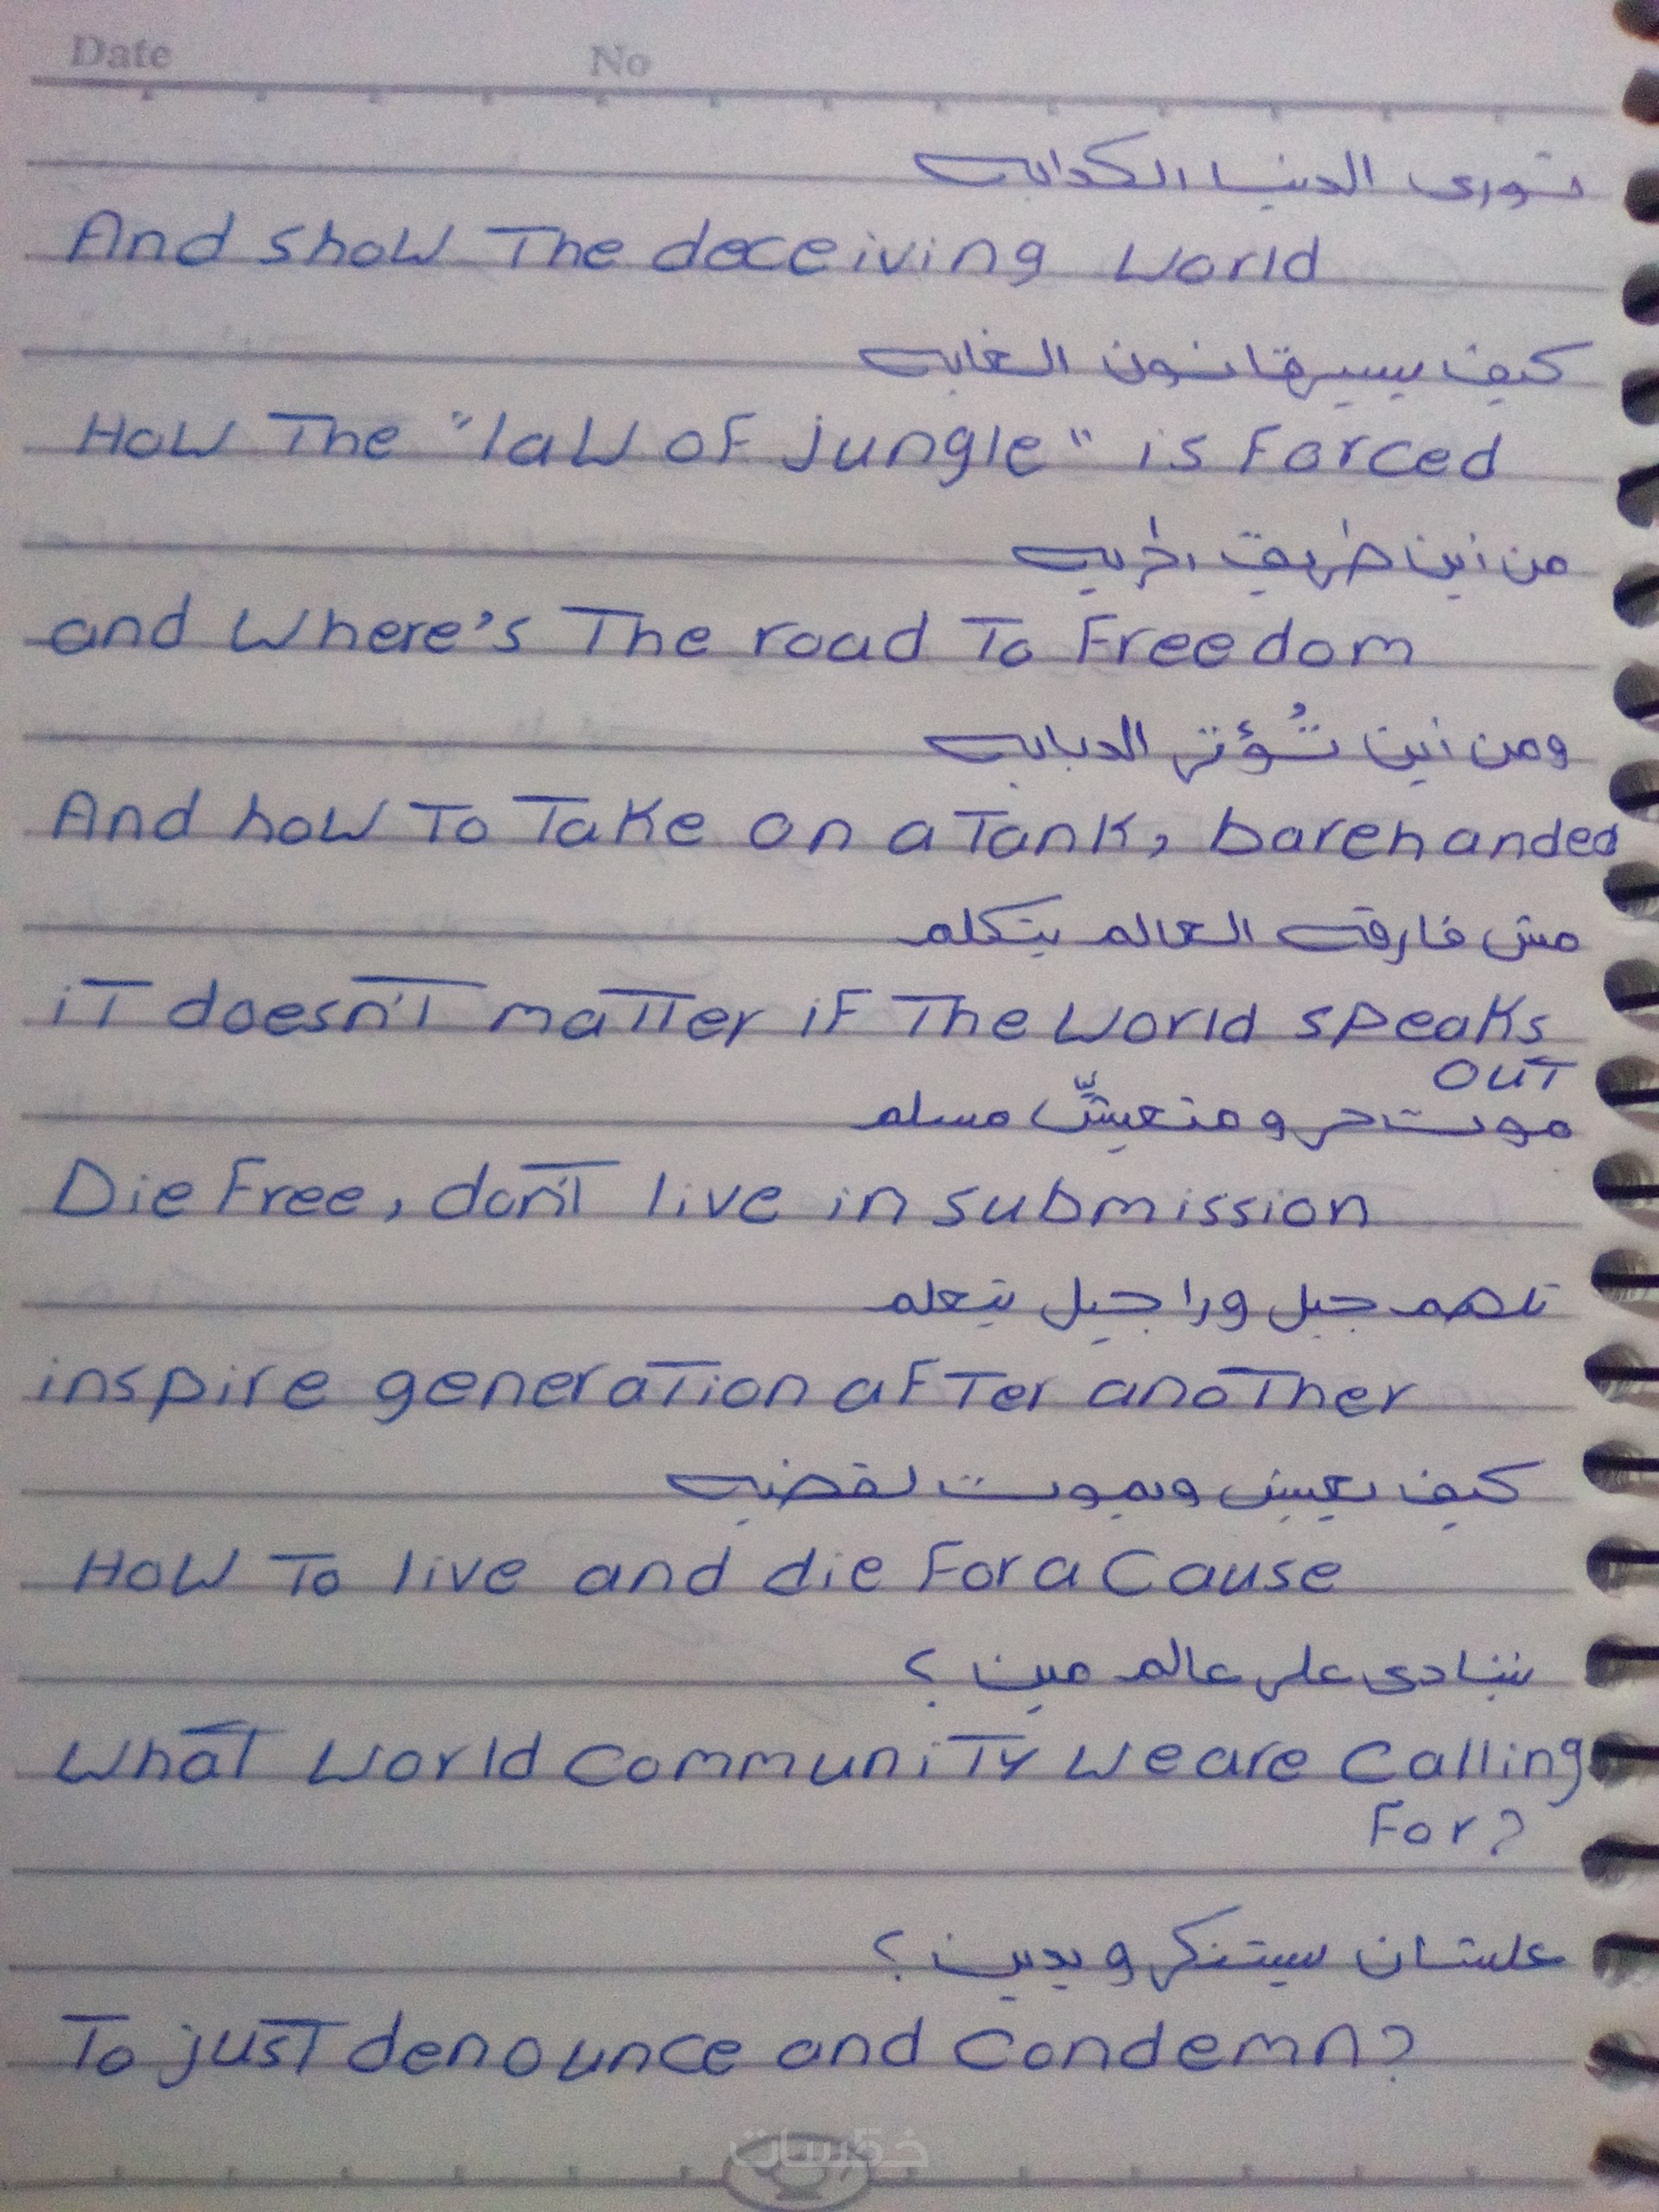 Date No
تورى الدنيا الكدابه
And show The deceiving world
كيف بيسير قانون الغابه
How The "law of jungle" is Forced
من أين طريق الحريه
and where's The road To Freedom
ومن أين تُؤتى الدبابه
And how To Take on a Tank, barehanded
مش فارقه العالم يتكلم
iT doesn'T maTTer iF The world speaks
ouT
موت حر ومتعيشّ مسلم
Die Free, don'T live in submission
تلهم جيل ورا جيل يتعلم
inspire generaTion aFTer anoTher
كيف يعيش ويموت لقضيه
How To live and die For a Cause
بننادى على عالم مين ؟
whaT world communiTy we are calling
For?
علشان يستنكر ويدين ؟
To jusT denounce and condemn?
خمسات